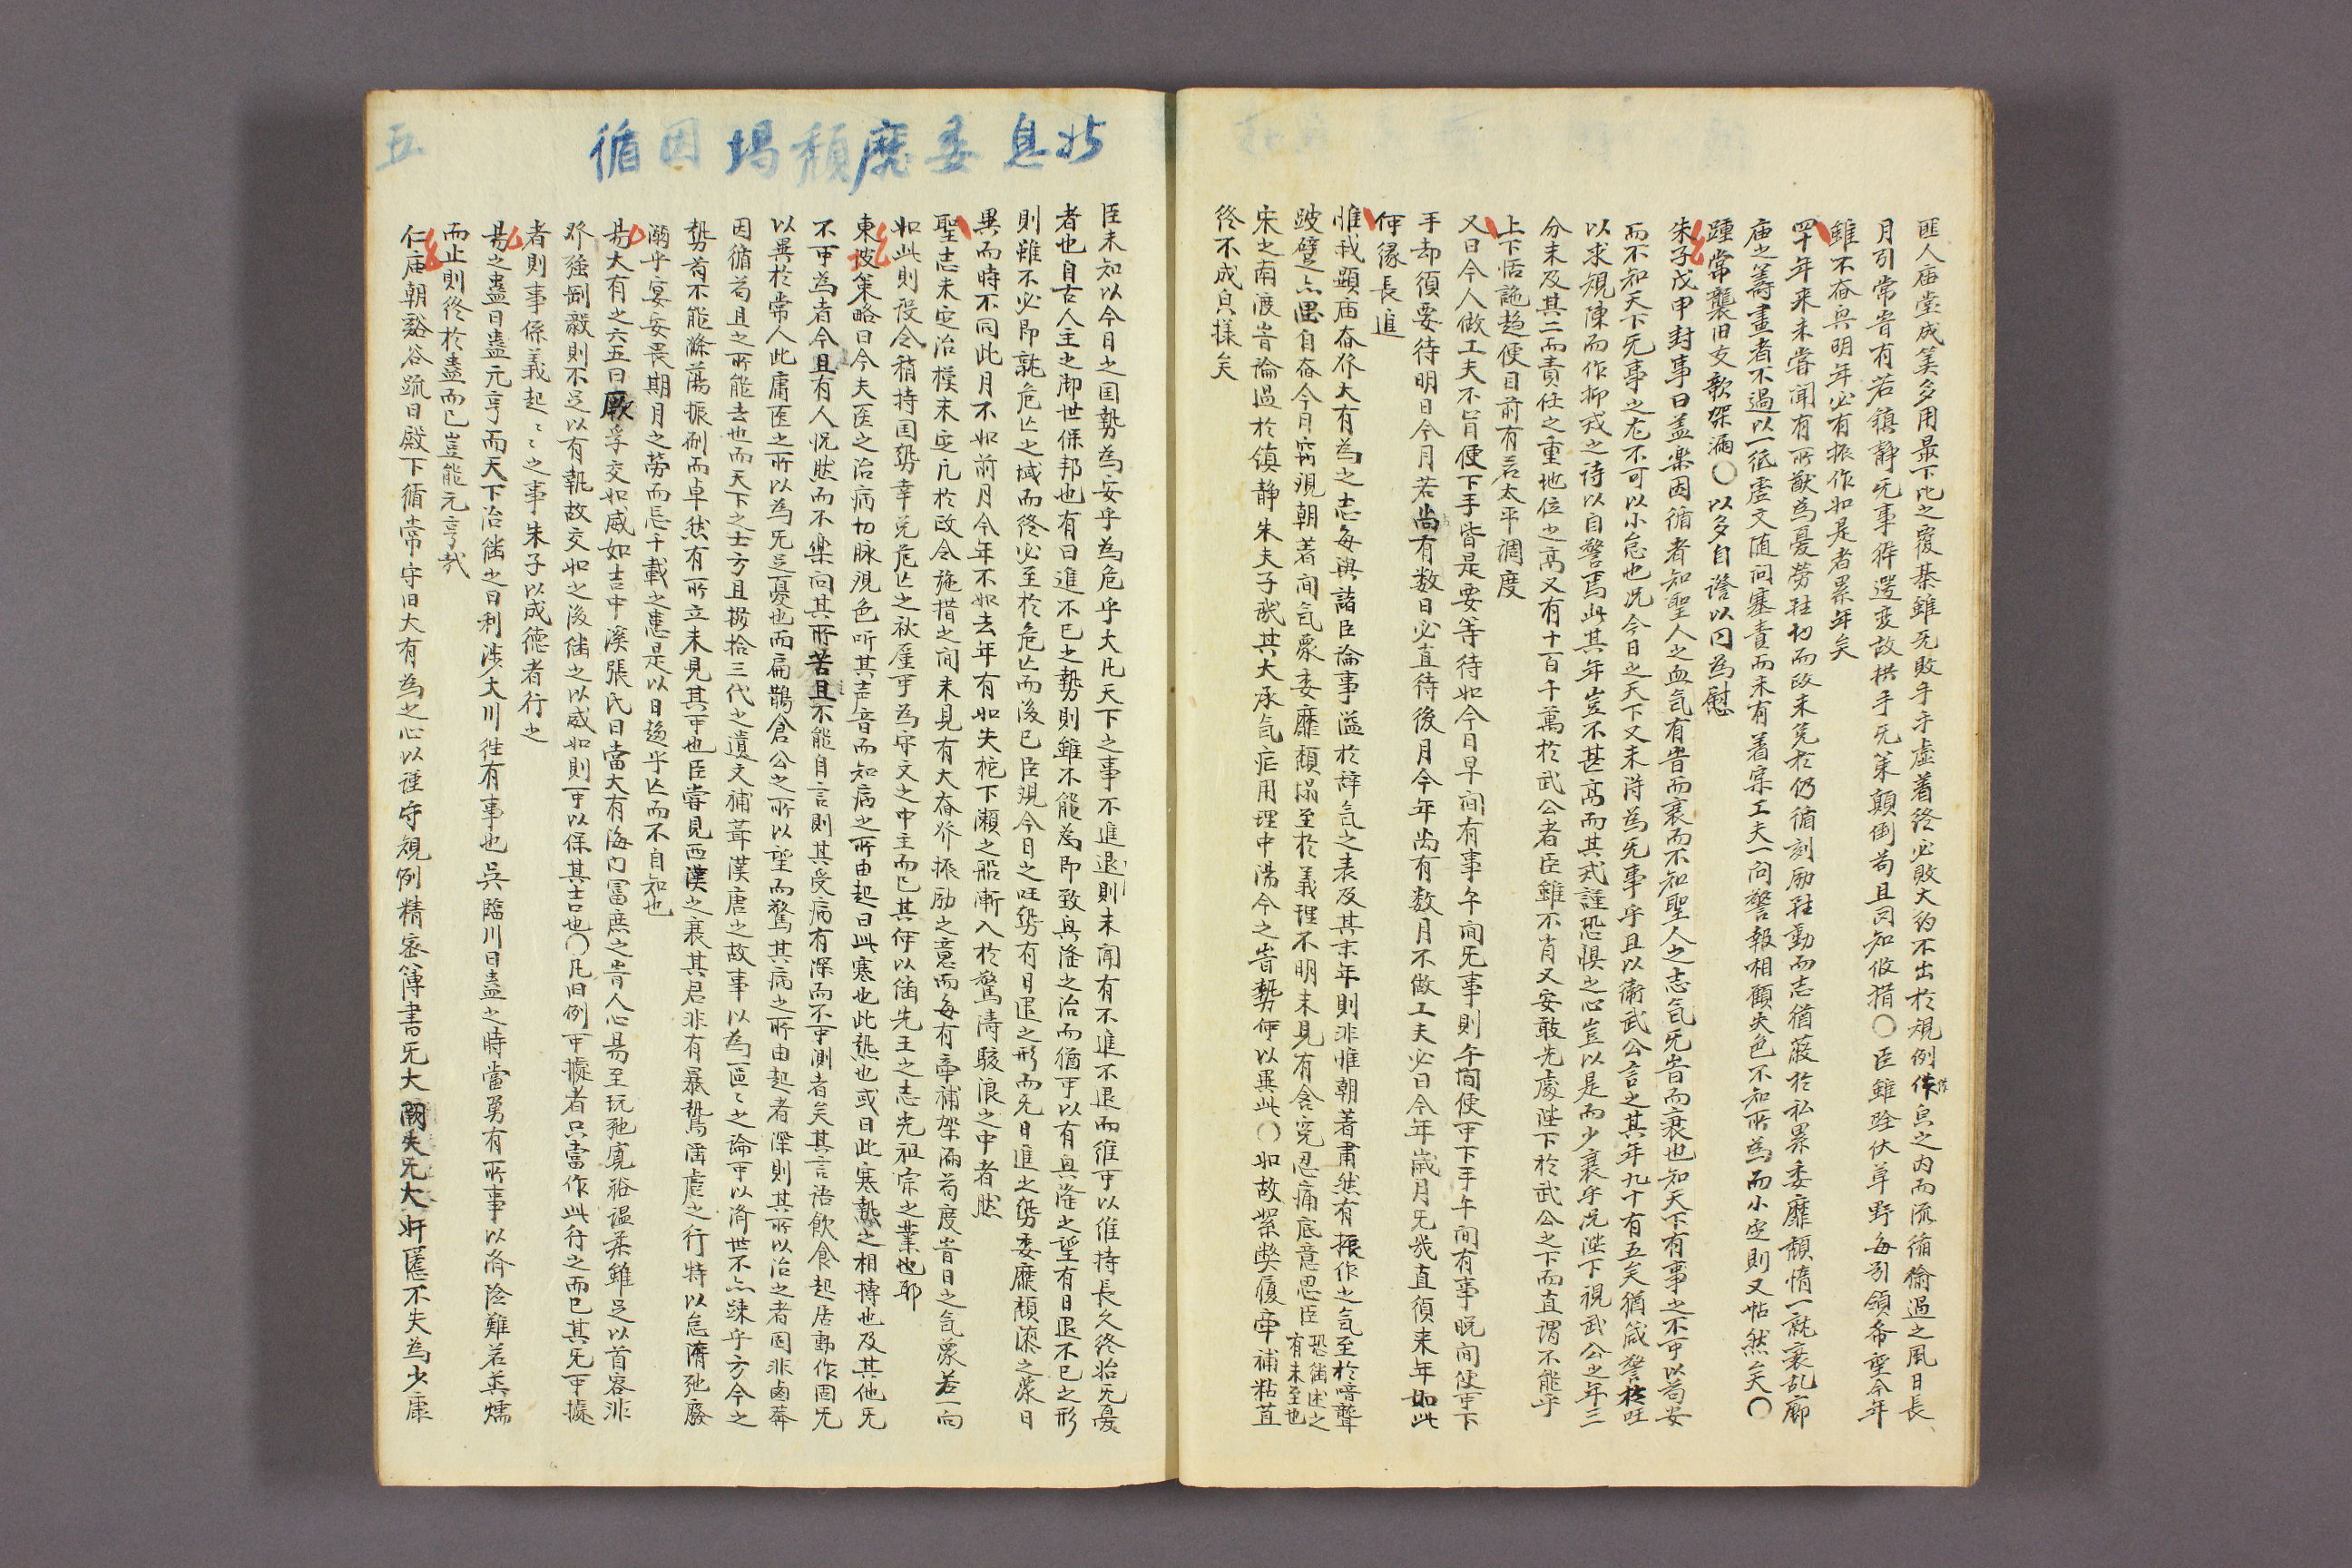 匪人庙堂成筭多用最下比之覆棊雖无敗手手虛着終必敗大約不出於規例作貟之内而流循偸過之風日長
月引常旹有若鎮静无事猝遇变故拱手无策顚倒苟且罔知攸措〇臣雖跧伏草野每引領希望今年
雖不奋兵明年必有振作如是者累年矣
四十年来未嘗聞有所猷為憂勞雖切而政未免於仍循刻励雖勤而志猶蔽於私累委靡頹惰一就衰乱廊
庙之籌畫者不過以一張虛文随问塞責而未有着实工夫一向警報相顧失色不知所為而小定則又帖然矣〇
踵常襲旧支欹架漏〇以多自謄以因為慰
朱子戊申封事曰盖樂因循者知聖人之血気有旹而衰而不知聖人之志気无旹而衰也知天下有事之不可以苟安
而不知天下无事之尤不可以小怠也况今日之天下又未淂為无事乎且以衛武公言之其年九十有五矣猶箴警於国
以求規陳而作抑戒之诗以自警焉此其年豈不甚高而其戒謹恐惧之心豈以是而少衰乎况陛下視武公之年三
分未及其二而責任之重地位之高又有十百千萬於武公者臣雖不肖又安敢先處陛下於武公之下而直谓不能乎
上下恬詭趋便目前有若太平凋度
又曰今人做工夫不肯便下手皆是要等待如今日早间有事午间无事則午间便可下手午间有事晩间便可下
手却須要待明日今月若尚有数日必直待後月今年尚有数月不做工夫必曰今年嵗月无幾直須来年如此
何缘長進
惟我顕庙奋发大有為之志每與諸臣论事溢於辞気之表及其末年則非惟朝著肃然有振作之気至於喑聾
跛躄亦思自奋今日窃覌朝著间気象委靡頹塌至於義理不明未見有含寃忍痛底意思臣恐継述之有未至也
宋之南渡旹论過於镇静朱夫子譏其大承気症用理中湯今之旹勢何以異此〇如故絮弊履牵補粘苴
終不成貟樣矣
姑息委靡頹塌因循
五
臣未知以今日之国勢為安乎為危乎大凡天下之事不進退則未闻有不進不退而徃可以維持長久終始无憂
者也自古人主之御世保邦也有曰進不已之勢則雖不能為即致兴隆之治而猶可以有兴隆之望有日退不已之形
則雖不必即就危亡之域而終必至於危亡而後已臣覌今日之囯勢有日退之形而无日進之勢委靡頹墜之象日
異而時不同此月不如前月今年不如去年有如失柁下瀬之船漸入於驚涛駭浪之中者然
聖志未定治模未定凡於政令施措之间未見有大奋发振励之意而每有牵補架漏苟度旹日之気象若一向
如此則設令稍持囯勢幸免危亡之秋厪可為守文之中主而已其何以継先王之志光祖宗之業也耶
東坡策略曰今夫医之治病切脉覌色听其声音而知病之所由起曰此寒也此熱也或曰此寒熱之相搏也及其他无
不可為者今且有人怳然而不樂问其所苦且不能自言則其受病有深而不可測者矣其言语飲食起居動作固无
以異於常人此庸医之所以為无足憂也而扁鵲倉公之所以望而驚其病之所由起者深則其所以治之者固非鹵莽
因循苟且之所能去也而天下之士方且掇拾三代之遺文補葺漢唐之故事以為區〻之论可以済世不亦踈乎方今之
勢苟不能滌蕩振刷而卓然有所立未見其可也臣嘗見西漢之衰其君非有暴鷙淫虐之行特以怠惰弛廢
溺乎宴安畏期月之勞而忘千載之患是以日趋乎亡而不自知也
易大有之六五曰厥孚交如威如吉中溪張氏曰當大有海内富庶之旹人心易至玩弛寛裕温柔雖足以首容非
发強剛毅則不足以有執故交如之後継之以威如則可以保其吉也〇凡旧例可據者只當作此行之而已其无可據
者則事係義起〻之事朱子以成德者行之
易之蠱曰蠱元亨而天下治継之曰利涉大川徃有事也吳臨川曰蠱之時當勇有所事以済险難若柔懦
而止則終於蠱而已豈能元亨哉
仁庙朝谿谷疏曰殿下循常守旧大有為之心以谨守規例精密簿書无大闕失无大奸慝不失為少康